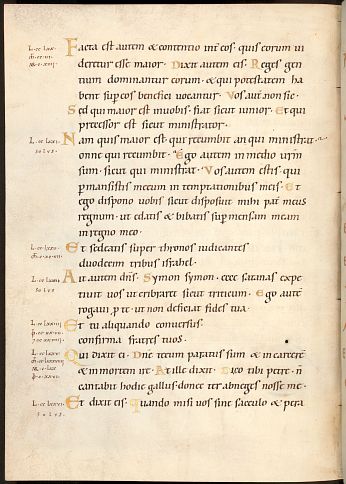 Facta est autem & contentio int̄ eos· quis eorum ui
deretur esse maior· Dixit autem eis· Reges gen
tium dominantur eorum· & qui potestatem ha
bent sup eos benefici uocantur· Vos aut̄ non sic·
Sed qui maior est inuobis· fiat sicut iunior· Et qui
precessor est sicut ministrator·
Nam quis maior est· qui recumbit an qui ministrat·
onne qui recumbit· Ego autem in medio ur̄m
sum· sicut qui ministrat· Vos autem estis· qui
pmansistis mecum in temptationibus meis· Et
ego dispono uobis sicut disposuit mihi pat̄ meus
regnum· ut edatis & bibatis sup mensam meam
in regno meo·
Et sedeatis super thronos iudicantes
duodecim tribus israhel·
Ait autem dn̄s· Symon symon· ecce satanas expe
tiuit uos ut cribraret sicut triticum· Ego aut̄
rogaui p te· ut non deficiat fides tua·
Et tu aliquando conuersus
confirma fratres tuos·
Qui dixit ei· Dn̄e tecum paratus sum· & in carcere
& in mortem ire· At ille dixit· Dico tibi petre· n̄
cantabit hodie gallus· donec ter abneges nosse me·
Et dixit eis· Quando misi uos sine sacculo & pera